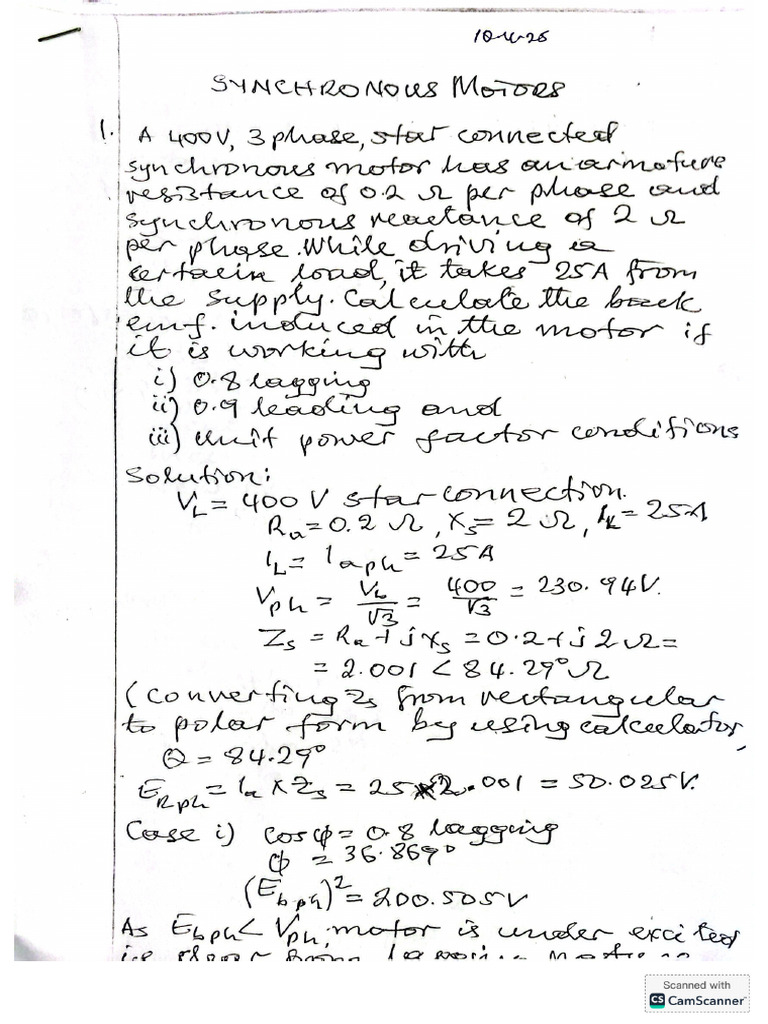 10-4-26
SYNCHRONOUS MOTORS
1. A 400V, 3 phase, star connected
synchronous motor has an armature
resistance of 0.2 Ω per phase and
synchronous reactance of 2 Ω
per phase. While driving a
certain load, it takes 25A from
the supply. Calculate the back
emf. induced in the motor if
it is working with
i) 0.8 lagging
ii) 0.9 leading and
iii) unit power factor conditions
Solution:
V_L = 400 V star connection.
R_a = 0.2 Ω, X_s = 2 Ω, I_L = 25A
I_L = I_aph = 25A
V_ph = V_L/√3 = 400/√3 = 230.94V.
Z_s = R_a + jX_s = 0.2 + j2 Ω =
= 2.001 < 84.29° Ω
(Converting Z_s from rectangular
to polar form by using calculator,
θ = 84.29°
E_Rph = I_a × Z_s = 25 × 2.001 = 50.025V.
Case i) cos φ = 0.8 lagging
φ = 36.869°
(E_bph)² = 200.505V
As E_bph < V_ph, motor is under excited
Scanned with
CS CamScanner